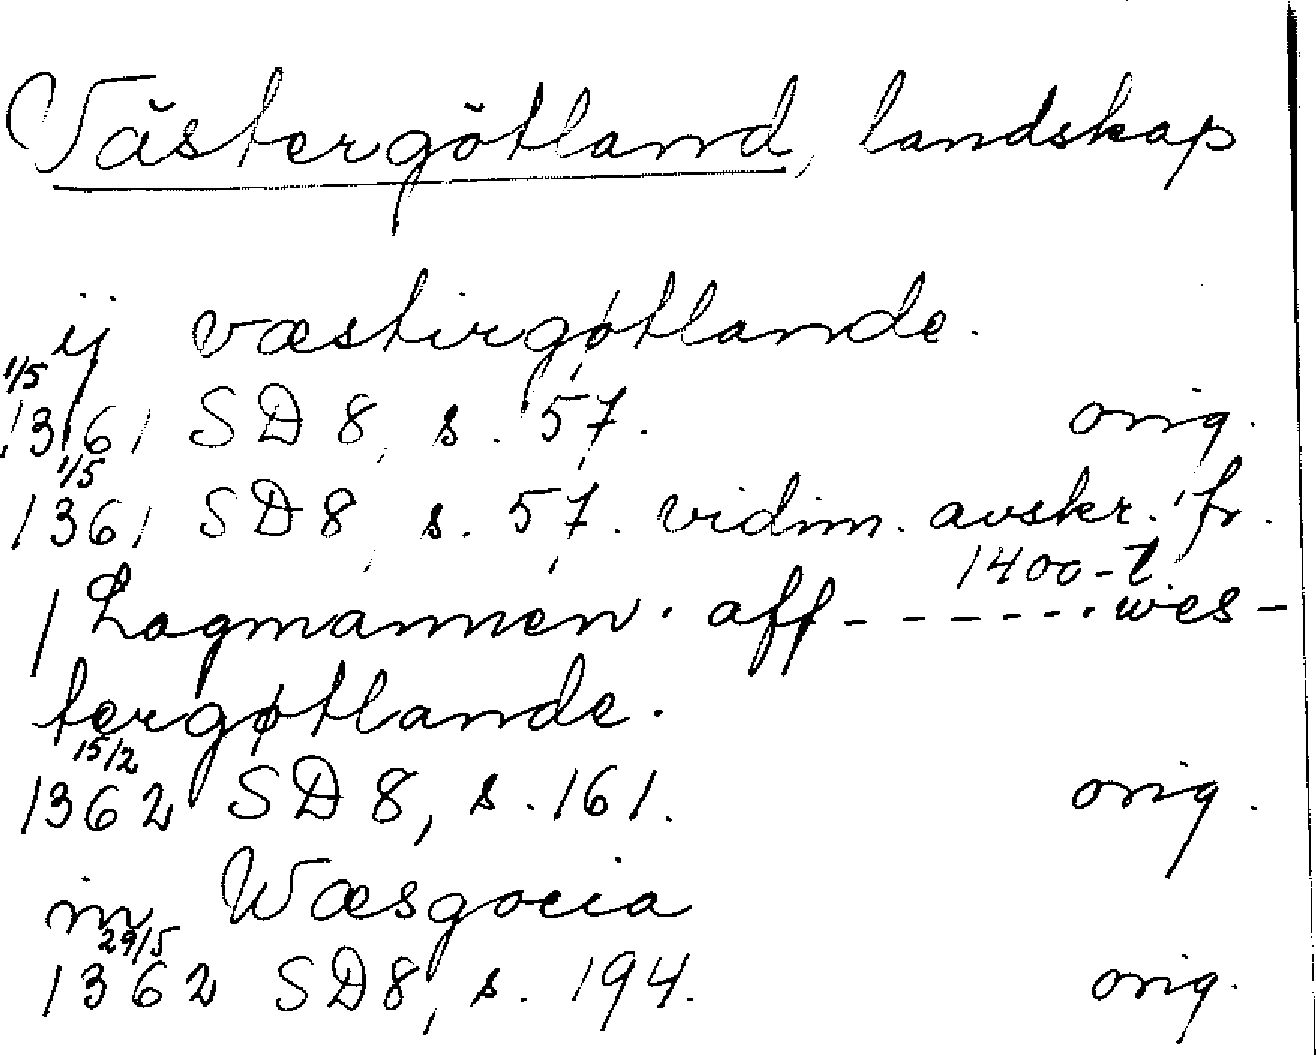 Västergötland, landskap
ij væstirgøtlande.
1/5
1361 SD 8, s. 57. orig.
1/5
1361 SD 8, s. 57. vidim. avskr. fr.
1400-t
Lagmannen. aff - - - - - - . wes-
tergøtlande.
15/2
1362 SD 8, s. 161. orig.
in Wæsgocia
29/5
1362 SD 8, s. 194. orig.